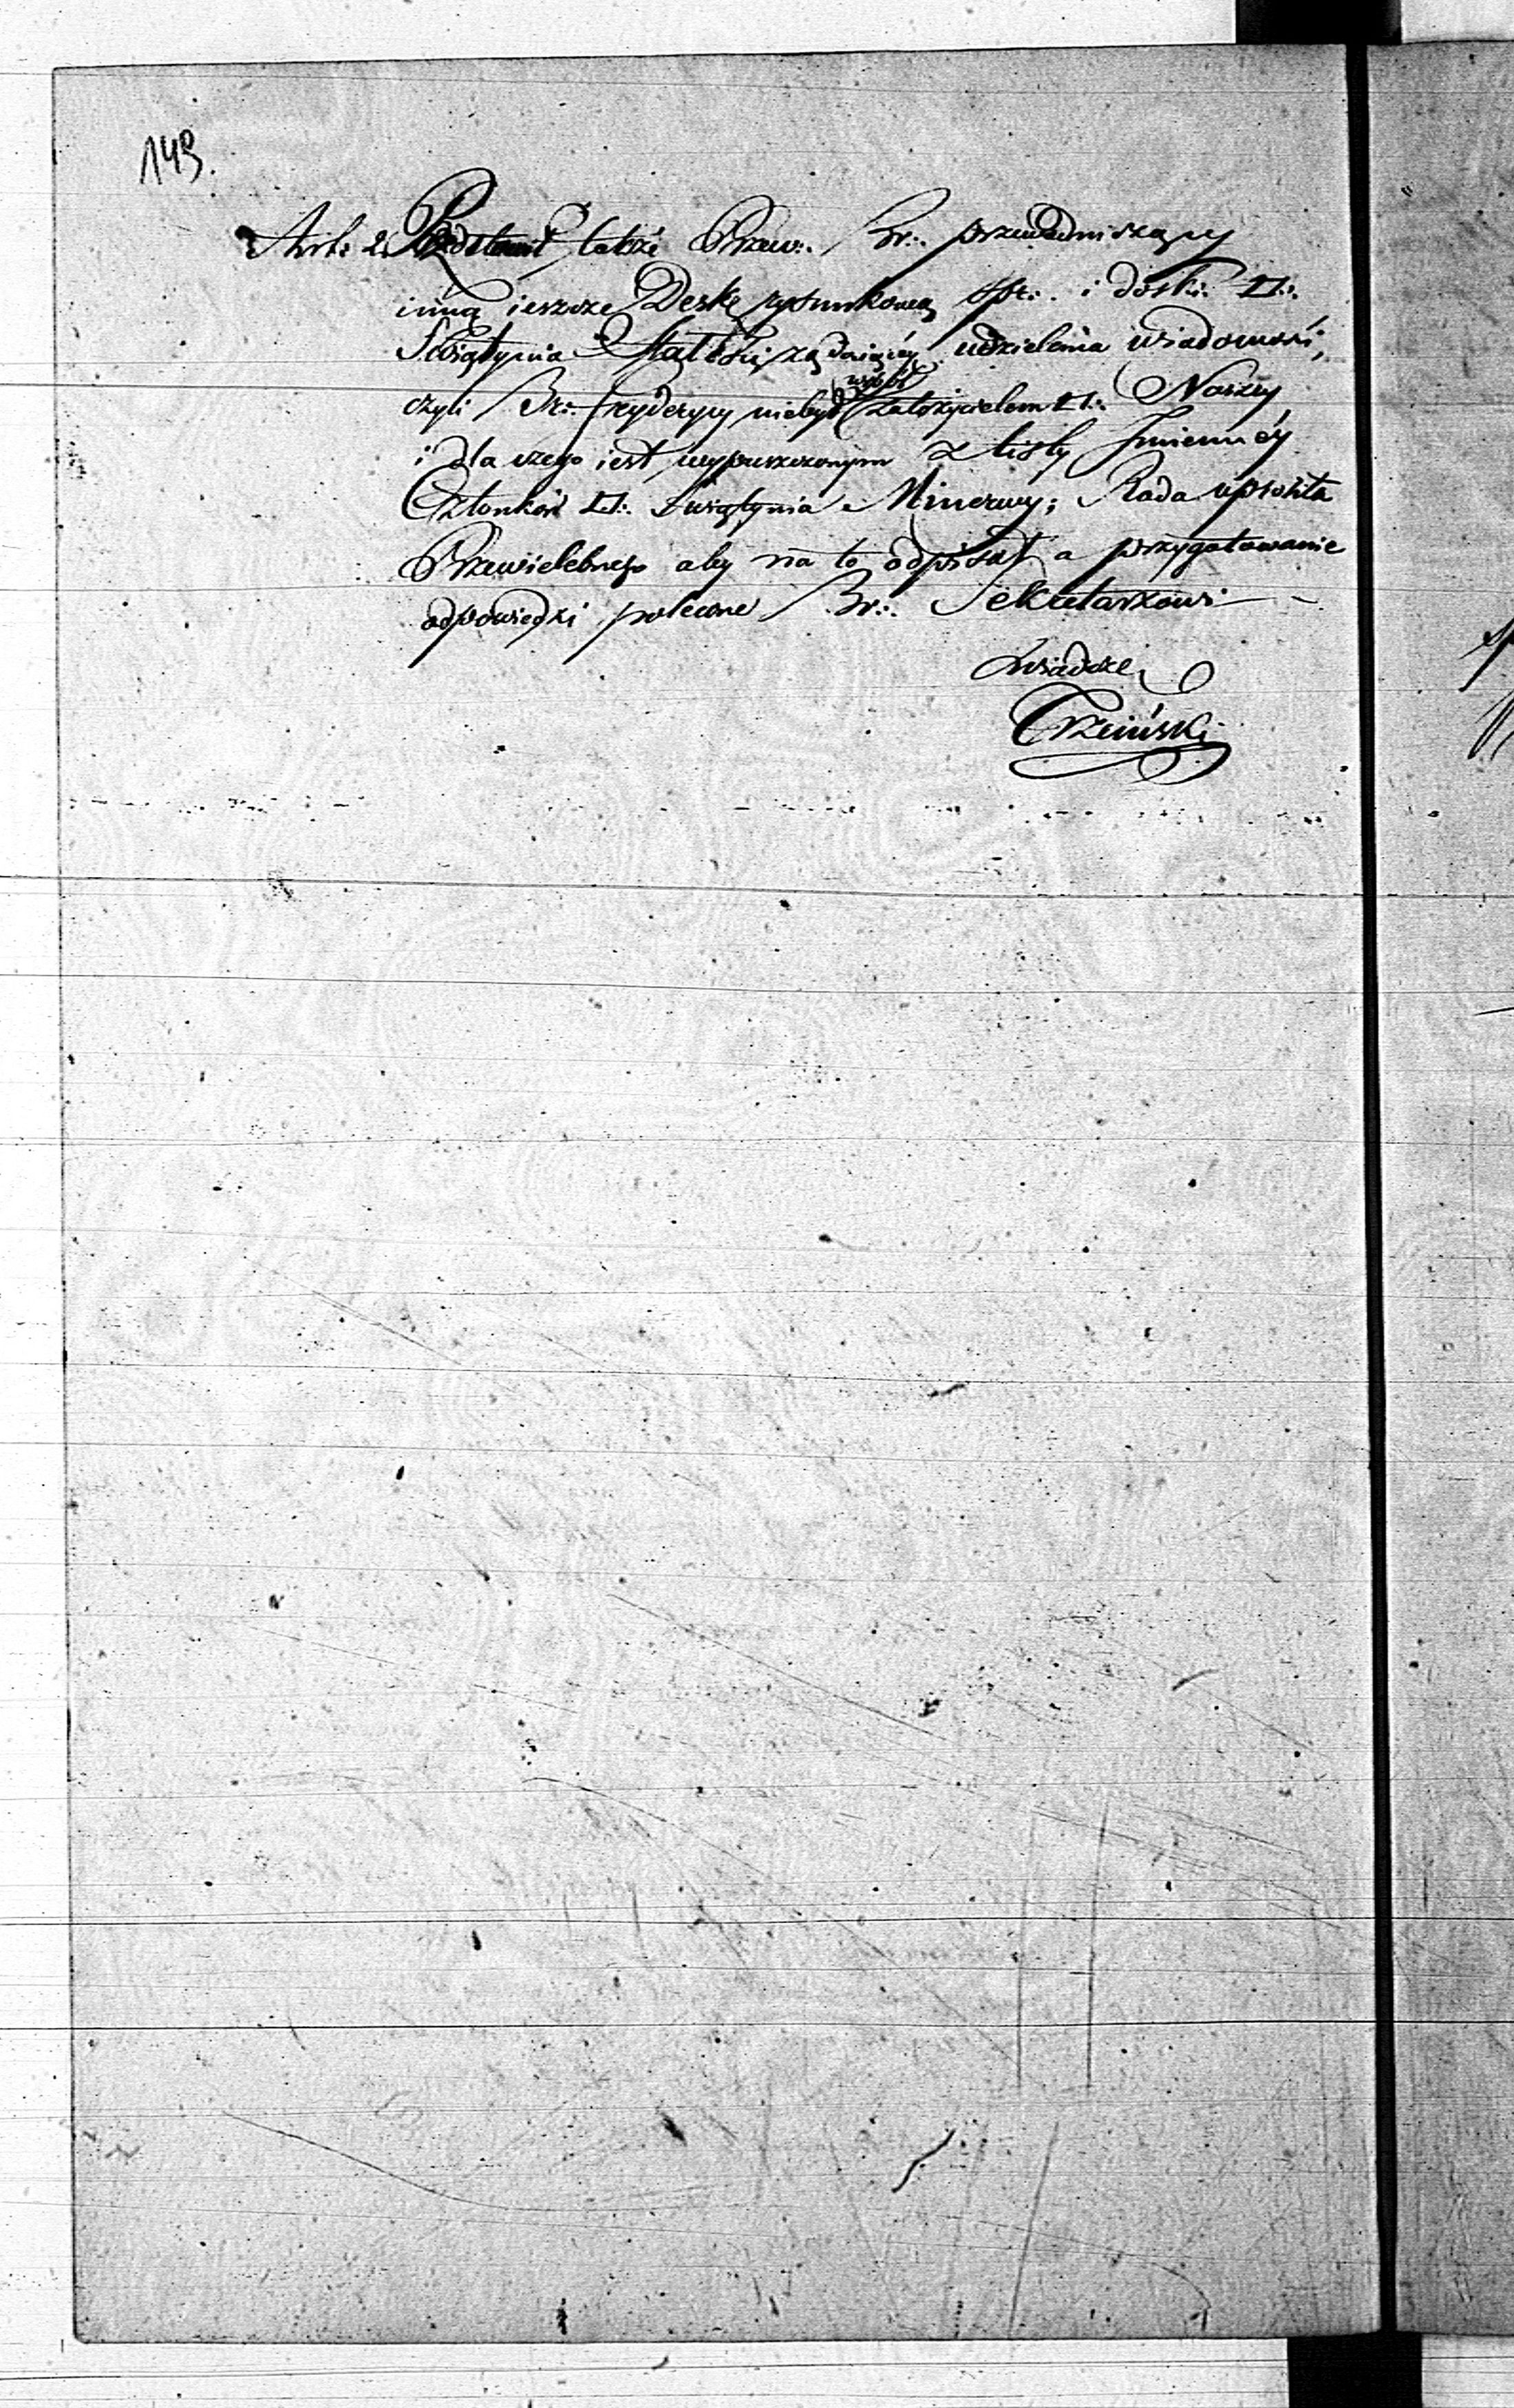 149.
Arti: 2. Przedstawił także Przew:. Br:. przewodniczący
inną ieszcze Deskę rysunkową spr:. i dosk:. □:.
Swiątynia Stałości żądaiącéy udzielenia wiadomości,
współ
czyli Br:. Fryderycy niebył założycielem □:. Naszey
i dla czego iest wypuszczonym z listy Jmiennéy
Członków □:. Swiątynia Minerwy; Rada uprosiła
Przewielebnego aby na to odpisał a przygotowanie
odpowiedzi polecone Br:. Sekretarzowi —
świadczę
Trzciński